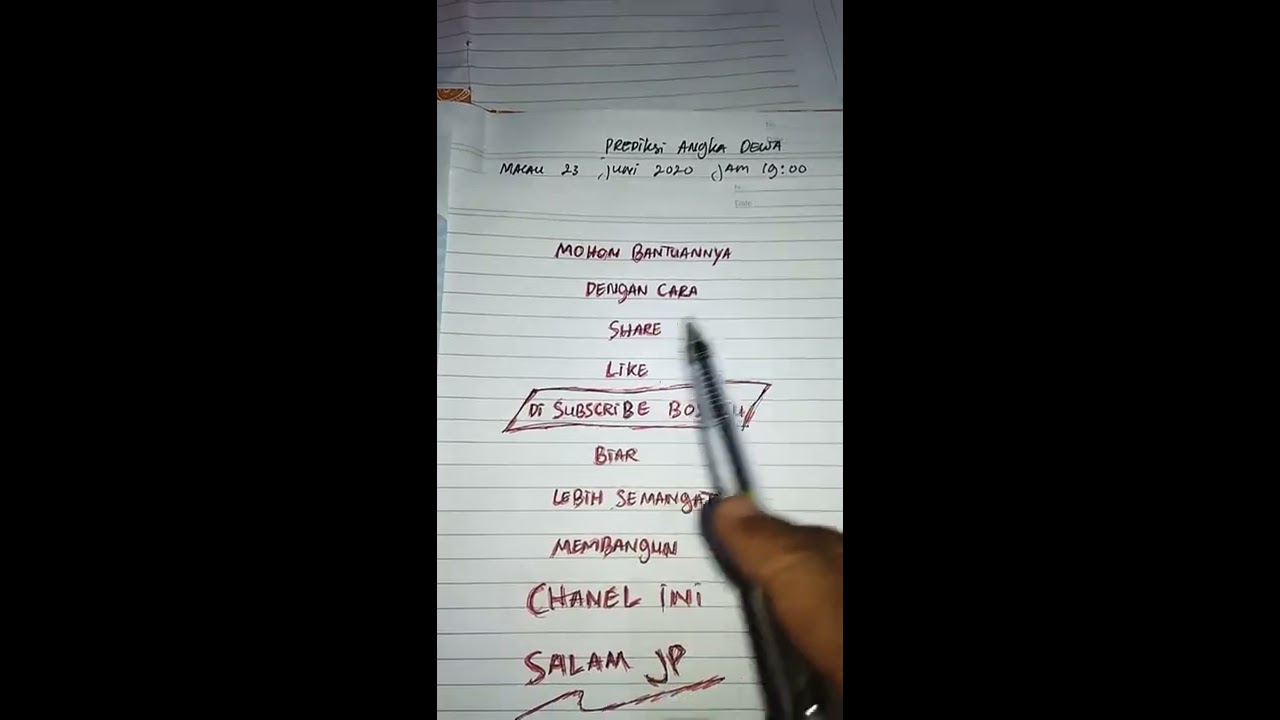 PREDIKSI ANGKA DEWA
MACAU 23 JUNI 2020 JAM 19:00
MOHON BANTUANNYA
DENGAN CARA
SHARE
LIKE
DI SUBSCRIBE
BIAR
LEBIH SEMANGAT
MEMBANGUN
CHANEL INI
SALAM JP